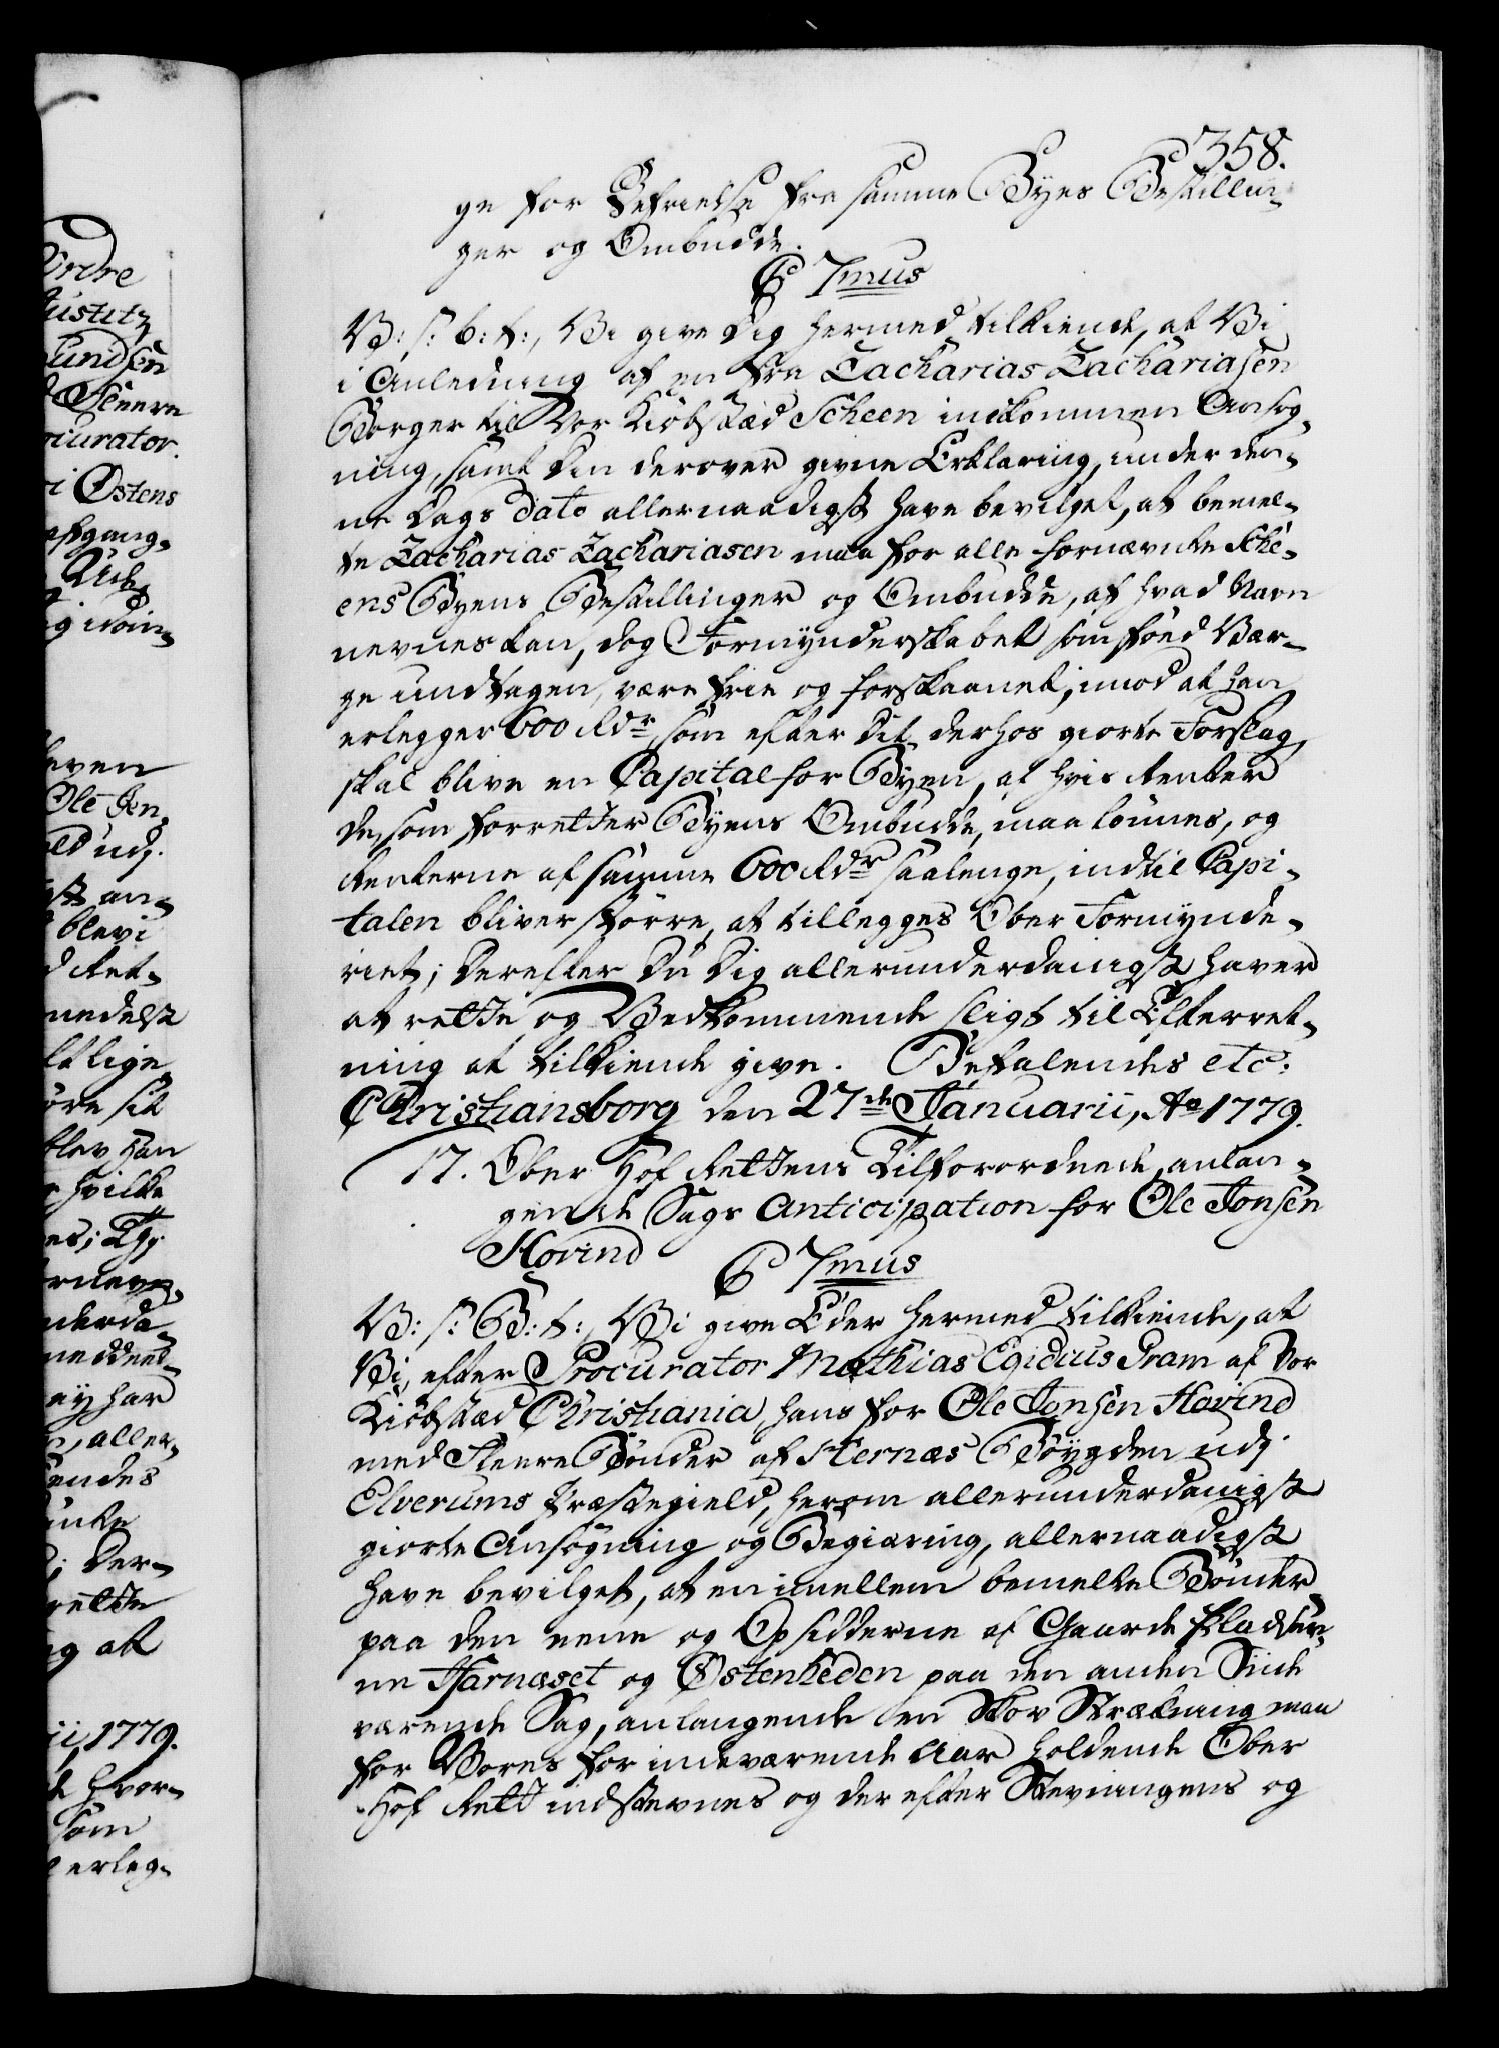 358.
ge for Befrielse fra samme Byes Bestillin-
ger og Ombudde.
C 7mus
V: s: b: t:, Vi give Dig hermed tilkiende, at Vi
i Anledning af en fra Zacharias Zachariasen
Borger til Vor Kiöbstæd Scheen indkommen Ansøg-
ning, samt Din derover givne Erklaring, under den-
ne Dags Dato allernaadigst have bevilget, at bemel-
te Zacharias Zachariasen maa for alle fornævnte Sche-
ens Byens Bestillinger og Ombudde, af hvad Navn
nevnes kan, dog Formynderskabet som föed Vær-
ge undtagen, være frie og forskaanet, imod at han
erlegger 600 Rdr, som efter Dit derhos giorte Forslag,
skal blive en Capital for Byen, af hvis Renter
de, som forretter Byens Ombudde, maa lönnes, og
Renterne af samme 600 Rdr saalenge, indtil Capi-
talen bliver större, at tillegges Ober Formynde-
riet; Derefter Du Dig allerunderdanigst haver
at rette og Vedkommende sligt til Efterret-
ning at tilkiende give. Befalendes etc:
Christiansborg den 27de Januarii, Ao 1779.
17. Ober Hof Rettens Tilforordnede, anlan-
gende Sags Anticipation for Ole Jonsen
Hovind
C 7mus
V: s: B: t:, Vi give Eder hermed tilkiende, at
Vi, efter Procurator Mathias Egidius Pram af Vor
Kiöbstæd Christiania, hans for Ole Jonsen Hovind
med fleere Bönder af Hernæs Böygden udj
Elverums Præstegield, herom allerunderdanigst
giorte Ansögning og Begiæring, allernaadigst
have bevilget, at en imellem bemelte Bönder
paa den eene og Opsidderne af Gaarde Pladser-
ne Harnæset og Østenheden paa den anden Siide
værende Sag, anlangende en Skov Strækning maa
for Vores for indeværende Aar holdende Ober
Hof Rett indstevnes og der efter Stevningens og